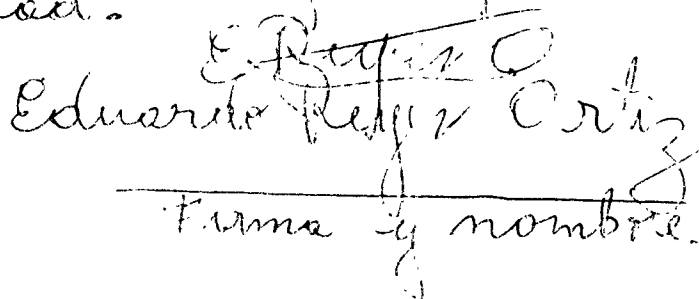 E Reyes O
Eduardo Reyes Ortiz
Firma y nombre.